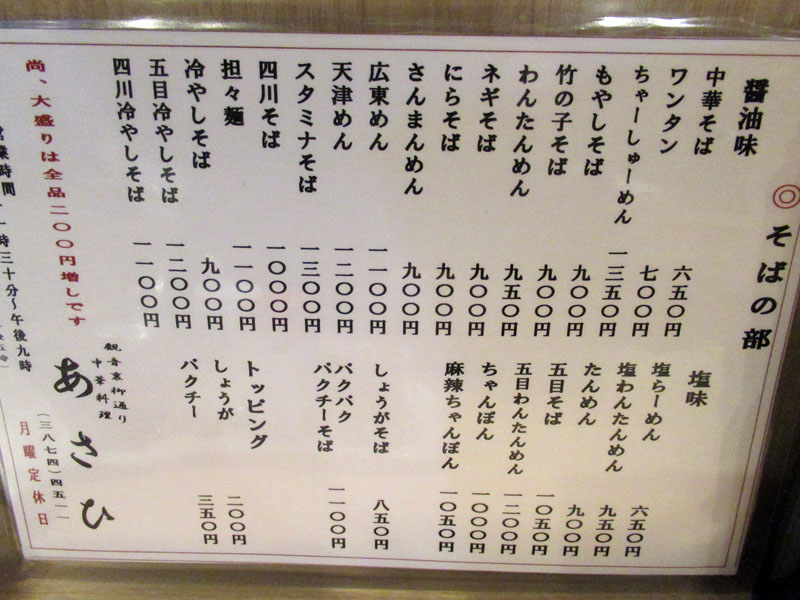 ◎そばの部
醤油味
中華そば 六五〇円
ワンタン 七〇〇円
ちゃーしゅーめん 一三五〇円
もやしそば 九〇〇円
竹の子そば 九〇〇円
わんたんめん 九五〇円
ネギそば 九〇〇円
にらそば 九〇〇円
さんまんめん 九〇〇円
広東めん 一一〇〇円
天津めん 一二〇〇円
スタミナそば 一三〇〇円
四川そば 一〇〇〇円
担々麺 一一〇〇円
冷やしそば 九〇〇円
五目冷やしそば 一二〇〇円
四川冷やしそば 一一〇〇円
塩味
塩らーめん 六五〇円
塩わんたんめん 九五〇円
たんめん 九〇〇円
五目そば 一〇五〇円
五目わんたんめん 一二〇〇円
ちゃんぽん 一〇〇〇円
麻辣ちゃんぽん 一〇五〇円
しょうがそば 八五〇円
パクパク
パクチーそば 一一〇〇円
トッピング
しょうが 二〇〇円
パクチー 三五〇円
尚、大盛りは全品二〇〇円増しです
観音裏柳通り
中華料理
あさひ
(三八七四)四五一一
月曜定休日
営業時間 時三十分〜午後九時